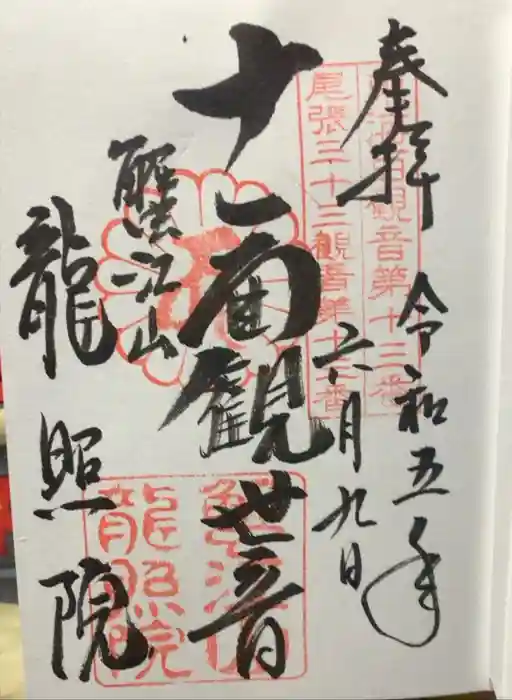 奉拝
令和五年
六月九日
観音第十三番
尾張三十三観音第十三番
十一面観世音
蟹江山
龍照院
蟹江山
龍照院